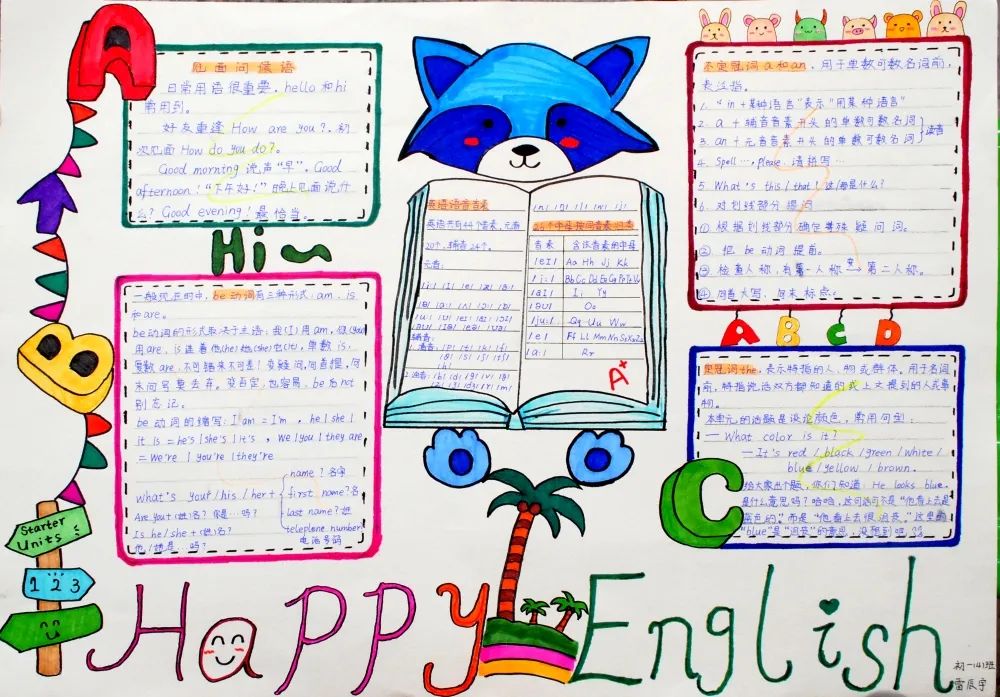 A
见面问候语
日常用语很重要, hello 和hi
常用到。
好友重逢 How are you?, 初
次见面 How do you do?。
Good morning 说声“早”。Good
afternoon!“下午好!”晚上见面说什
么? Good evening! 最恰当。
Hi~
B
一般现在时中, be 动词有三种形式: am、is
和are。
be动词的形式取决于主语: 我(I)用am, 你(you)
用are, is连着他(he)她(she)它(it), 单数is,
复数are, 不可错来不可乱! 变疑问,向前提, 问
末问号莫丢弃。变否定,也容易, be后not
别忘记。
be 动词的缩写: I am = I'm , he / she /
it is = he's / she's / it's , we / you / they are
= We're / you're / they're
What's your / his / her +
name? 名字
first name? 名
last name? 姓
telephone number
电话号码
Are you + (姓)名? 你是…吗?
Is he / she + (姓)名?
他/她是…吗?
Starter
Units
1 2 3
英语语音音素
英语共有44个音素, 元音
20个, 辅音24个。
元音:
辅音:
26个字母按同音素归类
音素 含该音素的字母
/eɪ/ Aa Hh Jj Kk
/i:/ Bb Cc Dd Ee Gg Pp Tt Vv
/aɪ/ Ii Yy
/əʊ/ Oo
/ju:/ Qq Uu Ww
/e/ Ff Ll Mm Nn Ss Xx Zz
/a:/ Rr
A+
不定冠词 a 和 an , 用于单数可数名词前,
表泛指。
1. “in +某种语言”表示“用某种语言”
2. a + 辅音音素开头的单数可数名词
3. an + 元音音素开头的单数可数名词
读音
4. Spell …, please. 请拼写…
5. What's this / that? 这/那是什么?
6. 对划线部分提问
① 根据划线部分确定特殊疑问词。
② 把 be 动词提前。
③ 检查人称, 有第一人称 变→ 第二人称。
④ 句首大写、句末标点。
A B C D
定冠词the, 表示特指的人、物或群体。用于名词
前, 特指说话双方都知道的或上文提到的人或事
物。
本单元的话题是谈论颜色, 常用句型:
— What color is it?
— It's red / black / green / white /
blue / yellow / brown.
C
给大家出个题, 你们知道 He looks blue.
是什么意思吗? 哈哈, 这句话可不是“他看上去是
蓝色的”, 而是“他看上去很沮丧。”这里的
“blue”是“沮丧”的意思, 没想到吧
Happy English
初一(4)班
雷辰宇